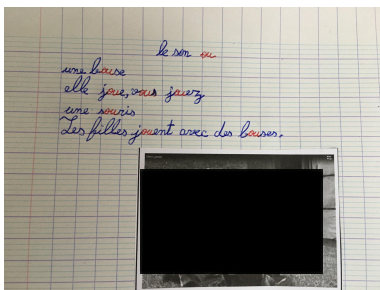 le son ou
une bouse
elle joue, vous jouez
une souris
Les filles jouent avec des bouses.